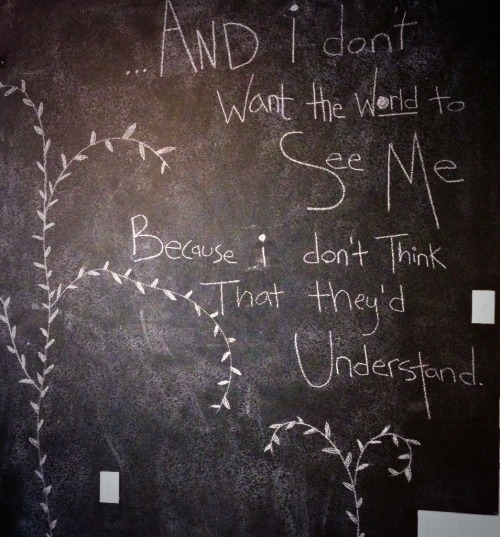 ...AND i don't
Want the World to
See Me
Because i don't Think
That they'd
Understand.